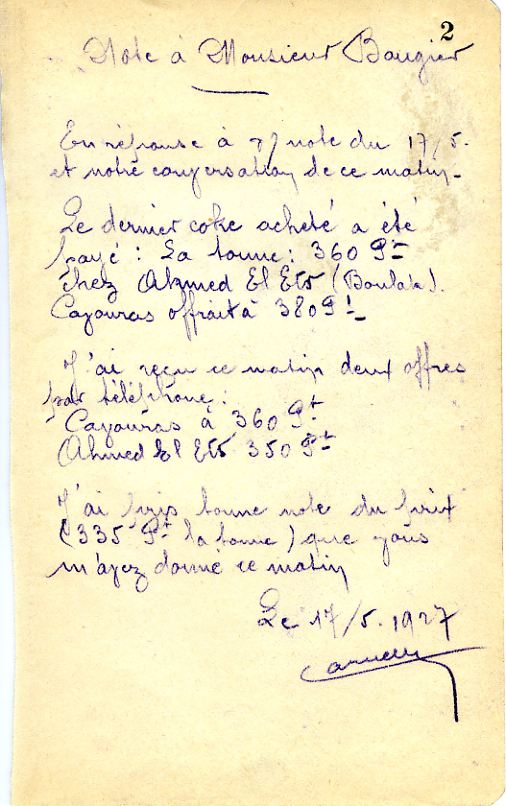 2
Note à Monsieur Baugier
En réponse à v/ note du 17/5.
et notre conversation de ce matin -
Le dernier coke acheté a été
payé : La tonne : 360 Pt
chez Ahmed El Ets (Boulak).
Cayouras offrait à 380 Pt
J'ai reçu ce matin deux offres
par téléphone :
Cayouras à 360 Pt
Ahmed El Ets 350 Pt
J'ai pris bonne note du prix
(335 Pt la tonne) que vous
m'avez donné ce matin
Le 17/5.1927